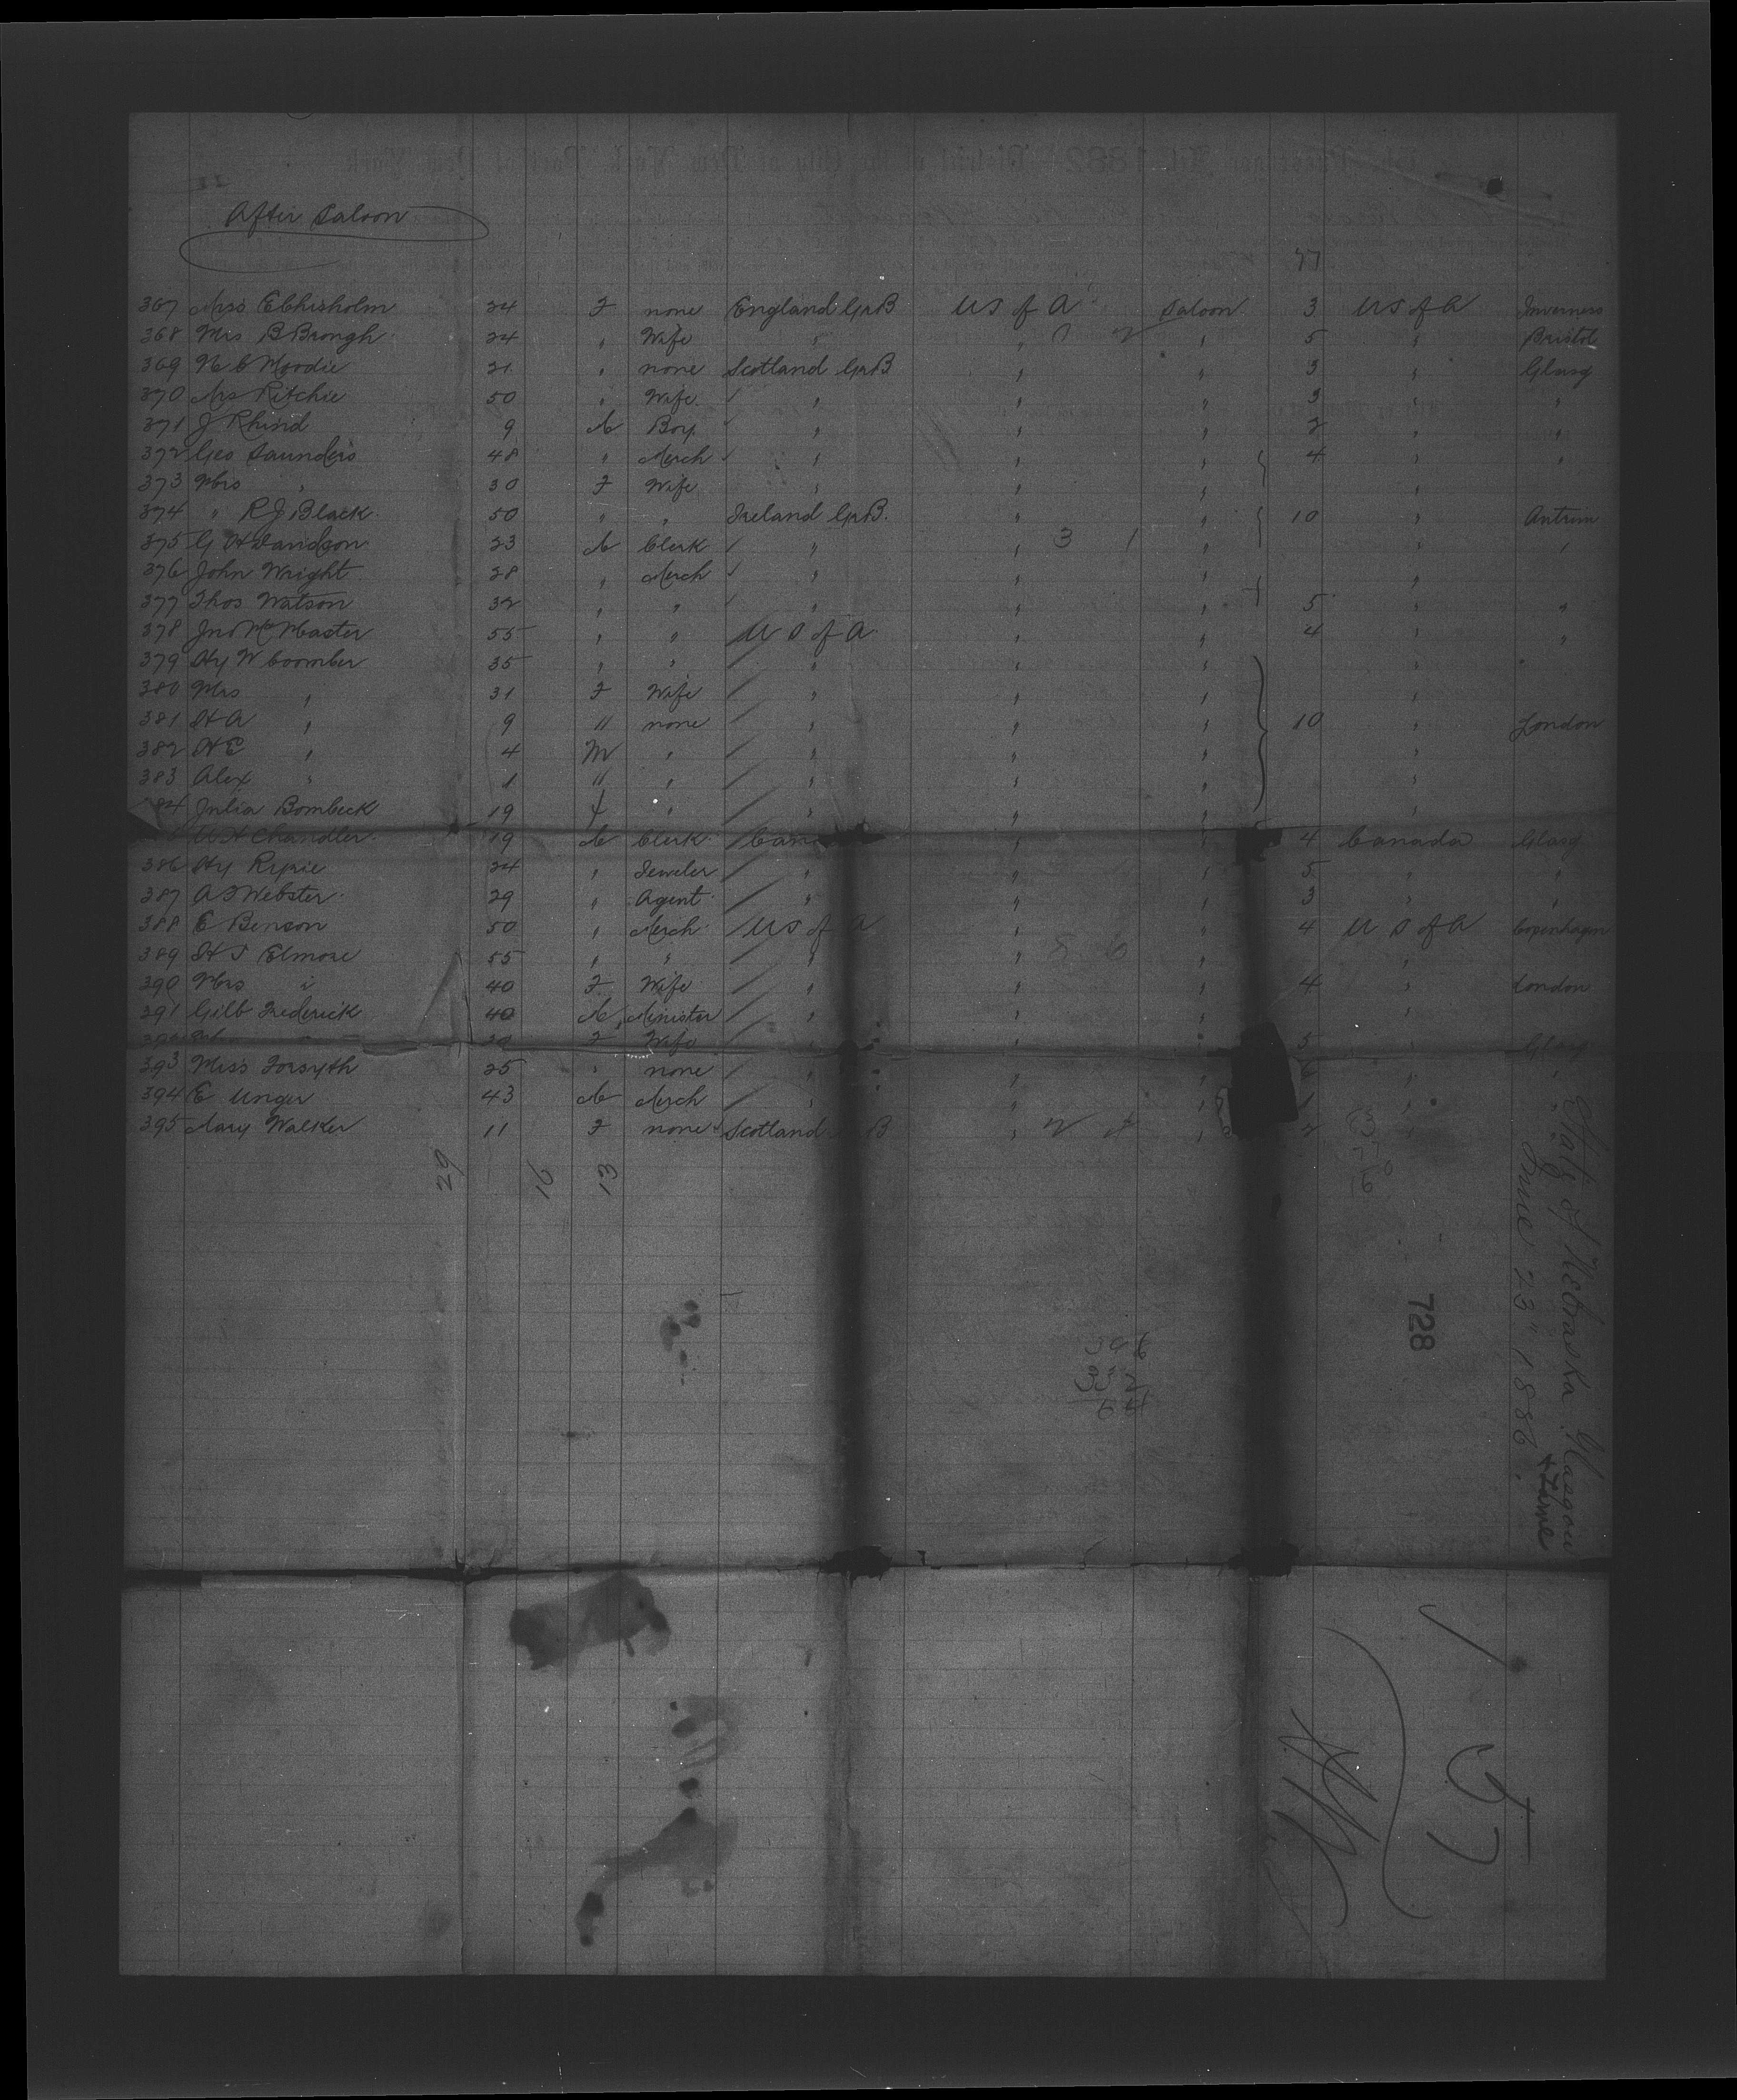 After Saloon
77
367 Mrs E Chisholm 24 F none England GrB U S of A Saloon 3 U S of A Inverness
368 Mrs B Brough 24 " Wife " " " 5 " Bristol
369 N C Moodie 21 " none Scotland GrB " " 3 " Glasg
370 Mrs Ritchie 50 " Wife " " " 3 " "
371 J Rhind 9 M Boy " " " 2 " "
372 Geo Saunders 48 " Merch " " " 4 " "
373 Mrs " 30 F Wife " " " "
374 " R J Black 50 " " Ireland GrB. " " 10 " Antrim
375 G H Davidson 23 M Clerk " " 3 1 " " "
376 John Wright 28 " Merch " " " "
377 Thos Watson 32 " " " " " 5 " "
378 Jno McMaster 55 " " U S of A " " 4 " "
379 Hy W Coomber 35 " " " " " " "
380 Mrs " 31 F Wife " " " "
381 H A " 9 " none " " " 10 " London
382 H E " 4 M " " " " "
383 Alex " 1 " " " " " "
384 Julia Bombeck 19 F " " " " "
A H Chandler 19 M Clerk Can " " 4 Canada Glasg
386 Hy Ryrie 24 " Jeweler " " " 5 " "
387 A S Webster 29 " Agent " " " 3 " "
388 E Benson 50 " Merch U S of A " " 4 U S of A Copenhagen
389 H S Elmore 55 " " " " 8 6 " "
390 Mrs " 40 F Wife " " " 4 " London
391 Gilb Frederick 40 M Minister " " " "
392 Mrs " 29 F Wife " " " 5 " Glasg
393 Miss Forsyth 25 " none " " " " "
394 E Unger 43 M Merch " " " " "
395 Mary Walker 11 F none Scotland B " "
29 16 13
State of Nebraska Glasgow
& Larne
June 23" 1886
728